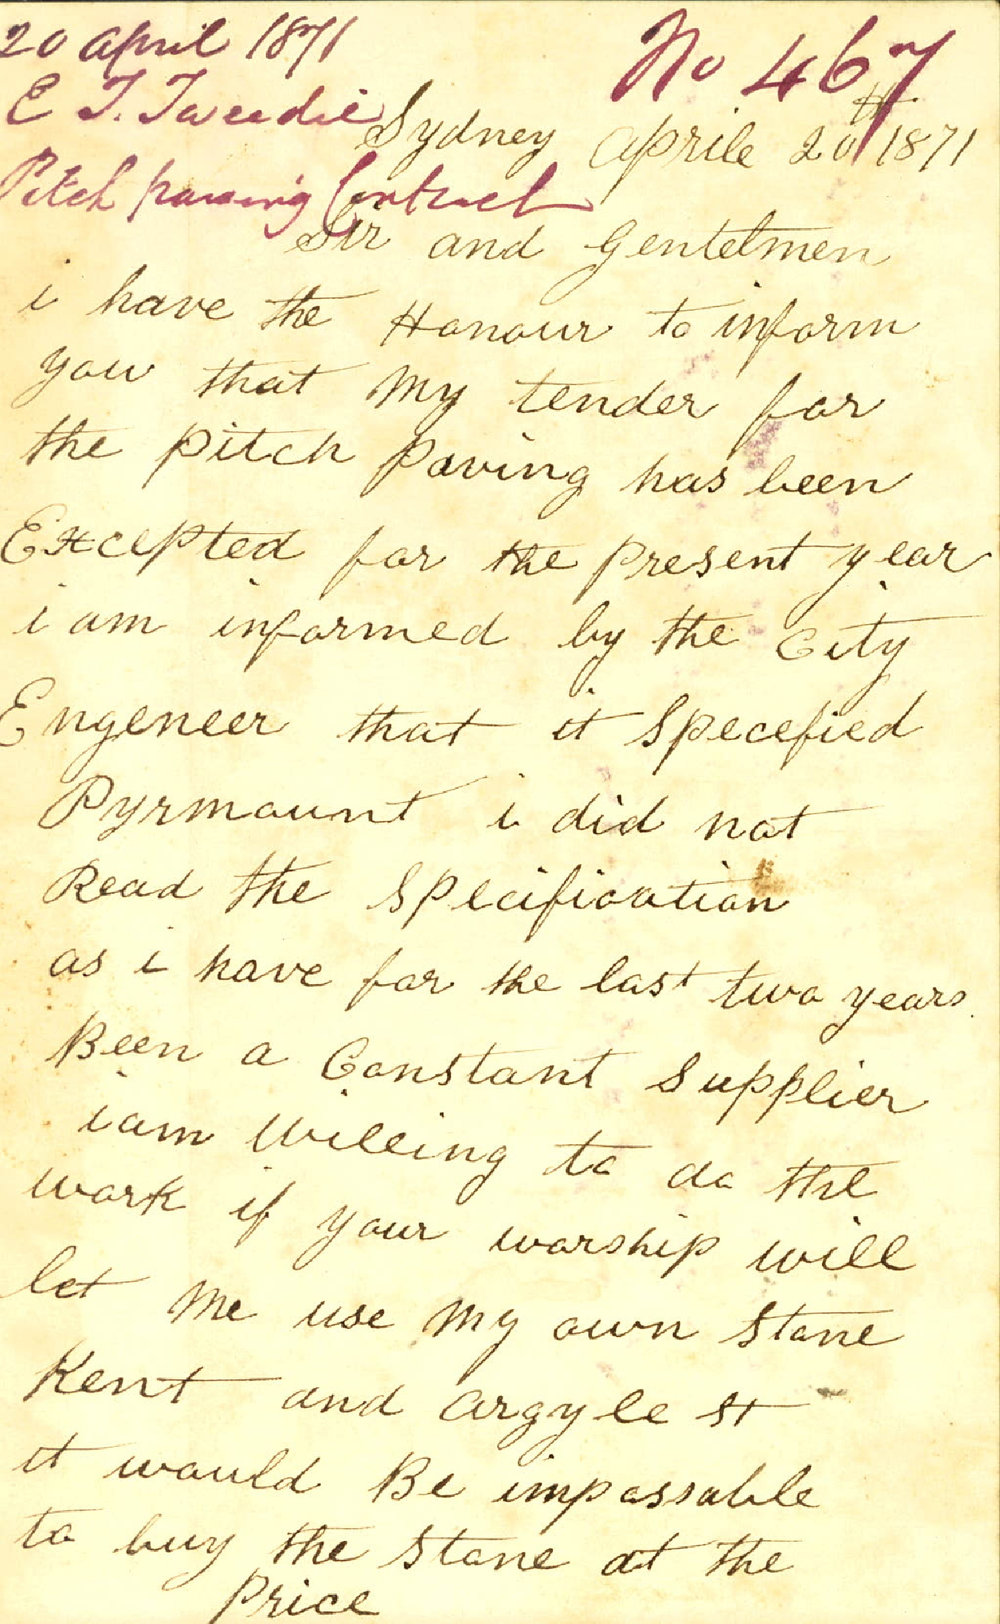 20 April 1871
No 467
E T. Tweedie
Sydney Aprile 20th 1871
Pitch paving Contract
Sir and Gentelmen
i have the Honour to inform
you that My tender for
the Pitch Paving has been
Excepted for the Present year
i am informed by the City
Engeneer that it Specefied
Pyrmount i did not
Read the Specification
as i have for the last two years
Been a Constant Supplier
i am Willing to do the
work if your worship will
let Me use My own Stone
Kent and Argyle St
it would Be impossable
to buy the Stone at the
Price